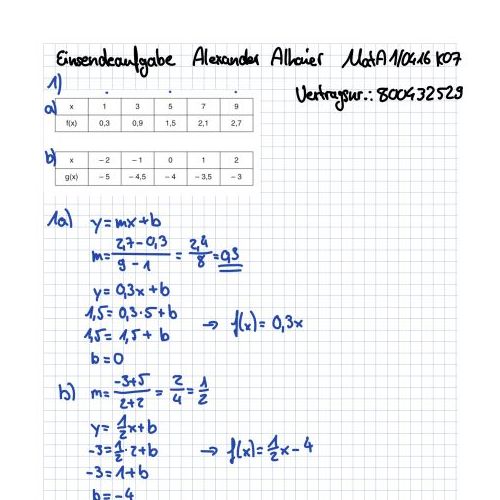 Einsendeaufgabe Alexander Alhaier MatA 1/0416 K07
1)
Vertragsnr.: 800432529
a)
x 1 3 5 7 9
f(x) 0,3 0,9 1,5 2,1 2,7
b)
x – 2 – 1 0 1 2
g(x) – 5 – 4,5 – 4 – 3,5 – 3
1a) y = mx + b
m = 2,7 - 0,3 / 9 - 1 = 2,4 / 8 = 0,3
y = 0,3x + b
1,5 = 0,3 · 5 + b
1,5 = 1,5 + b → f(x) = 0,3x
b = 0
b) m = -3+5 / 2+2 = 2/4 = 1/2
y = 1/2 x + b
-3 = 1/2 · 2 + b → f(x) = 1/2 x - 4
-3 = 1 + b
b = -4